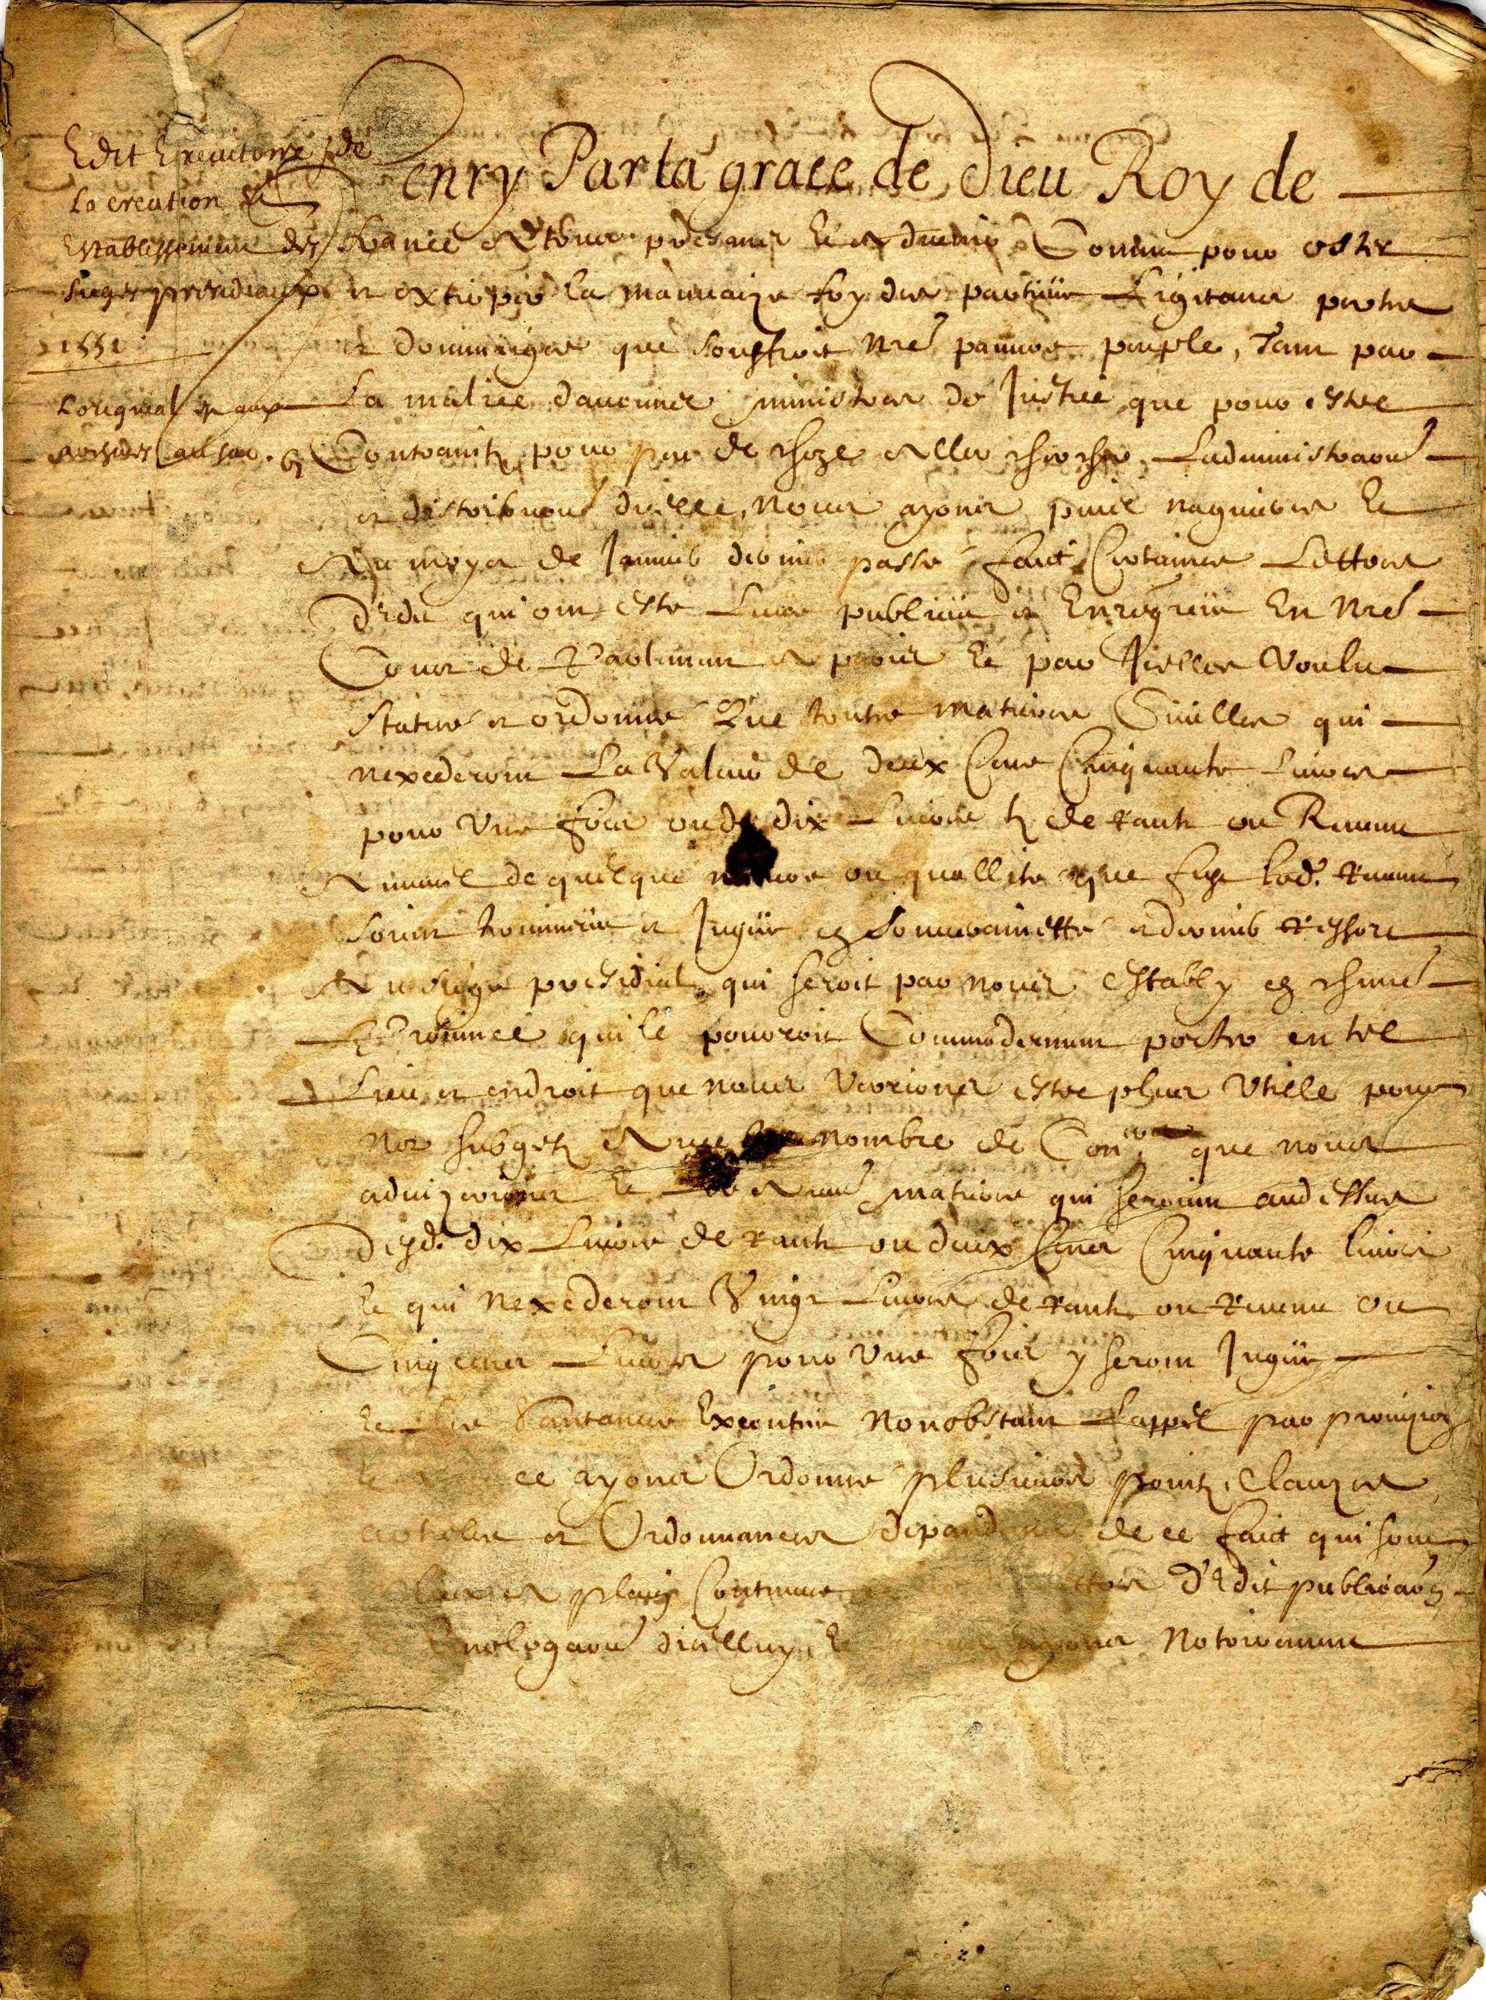 Edit Executoire de
La creation &
Establissement des
sieges presidiaux
1551
Loriginal
Henry Par la grace de Dieu Roy de
france A tous presans et advenir Comme pour oster
et extirper la mauvaize foy des parties Litigans pertes
et dommaiges que souffroit nre pauvre peuple, Tant par
La malice daucuns ministres de Justice que pour estre
Contraintz pour peu de choze aller chercher Ladministraon
et distribuon dicelle, nous ayons puis naguieres Et
Au moys de Janvier dernier passé faict Certaines Lettres
Dedit qui ont esté Leues publiees et Enregrees En nre
Cour de Parlement A paris Et par Icelles Voulu
statué et ordonné Que toutes matieres Civilles qui
nexcederont La Valeur de deux Cens Cinquante Livres
pour Une fois ou de dix Livres tz de rante ou Revenu
Annuel de quelque nature ou quallite que fust led. Revenu
soient terminees et Jugees en souverainetté et dernier Ressort
Au siege presidial qui seroit par nous estably en chune
Province qui le pouvroit Commodement porter en tel
Lieu et endroit que nous verrions estre plus Utille pour
noz subgetz Avec nombre de Coners que nous
advizerions Et Les Aues matieres qui seroient audessus
Desd. dix Livres de rante ou deux Cens Cinquante livres
et qui nexcederont Vingt Livres de rante ou Revenu ou
Cinq cens Livres pour Une fois y seront Jugees
et Les Santances Executees nonobstant Lappel par provizion
ce ayons Ordonné plusieurs pointz, Clauzes
articles et Ordonnances depandans de ce faict qui sont
A plain Contenues Lettres D'Edit publicaon
dicelluy, Et ayons notoirement